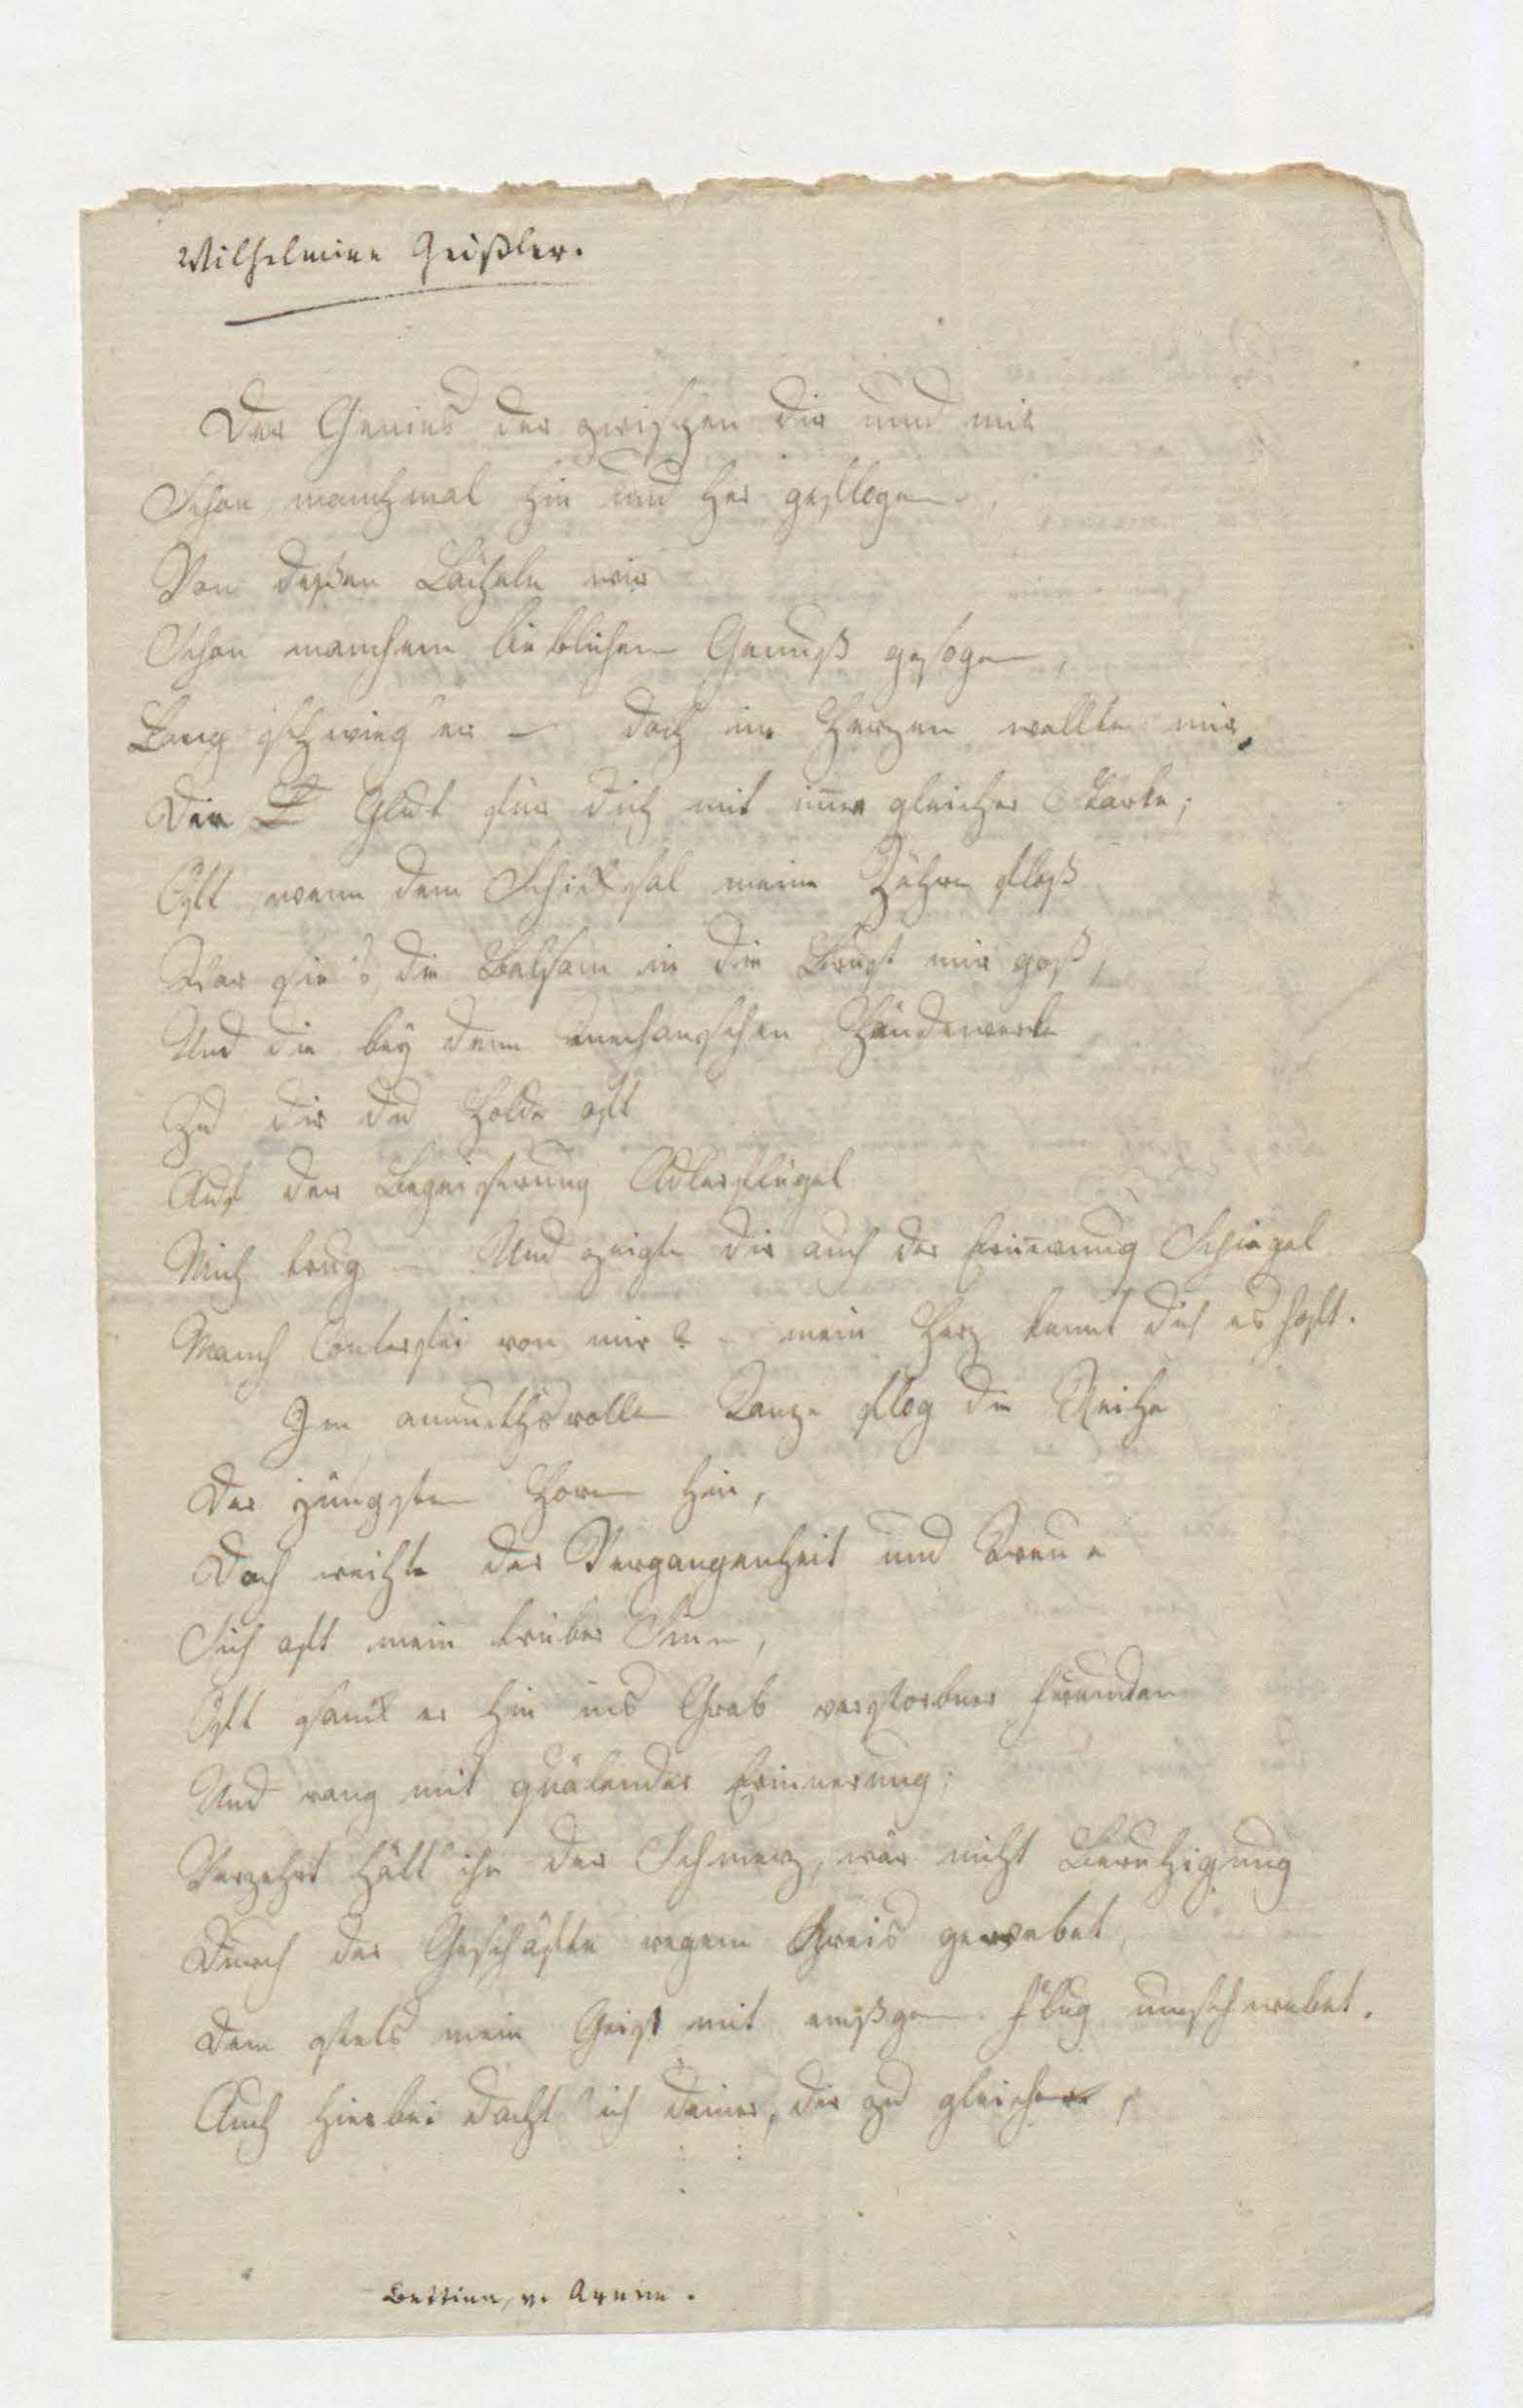 Wilhelmine Geißler.
Der Genius der zwischen dir und mir
Schon manchmal hin und her geflogen,
Von deßen Lächeln wir
Schon manchen lieblichen Genuß gesogen,
Lang schwieg er – doch im Herzen wallte mir
Die Glut für dich mit im̅er gleicher Stärke;
Oft wenn dem Schicksal meine Zähre floß
War sie's, die Balsam in die Brust mir goß,
Und die bey dem mechanschen Händewerk
Zu dir du Holde oft
Auf der Begeisterung Adlerflügel
Mich trug – Und zeigte dir auch der Erin̅erung Spiegel
Manch Conterfei von mir? – mein Herz kennt dich es hoft.
Im anmuthsvollen Tanze flog die Reihe
Der jüngsten Horen hin,
Doch weihte der Vergangenheit und Treue
Sich oft mein trüber Sinn,
Oft sank er hin ins Grab verstorbner Freuden
Und rang mit quälender Erinnerung;
Verzehrt hätt ihn der Schmerz, wär nicht Beruhigung
Durch der Geschäfte regem Kreis gewebet,
Dem stets mein Geist mit emßgem Flug umschwebet.
Auch hierbei dacht ich deiner, dir zu gleichen,
Bettina v. Arnim.